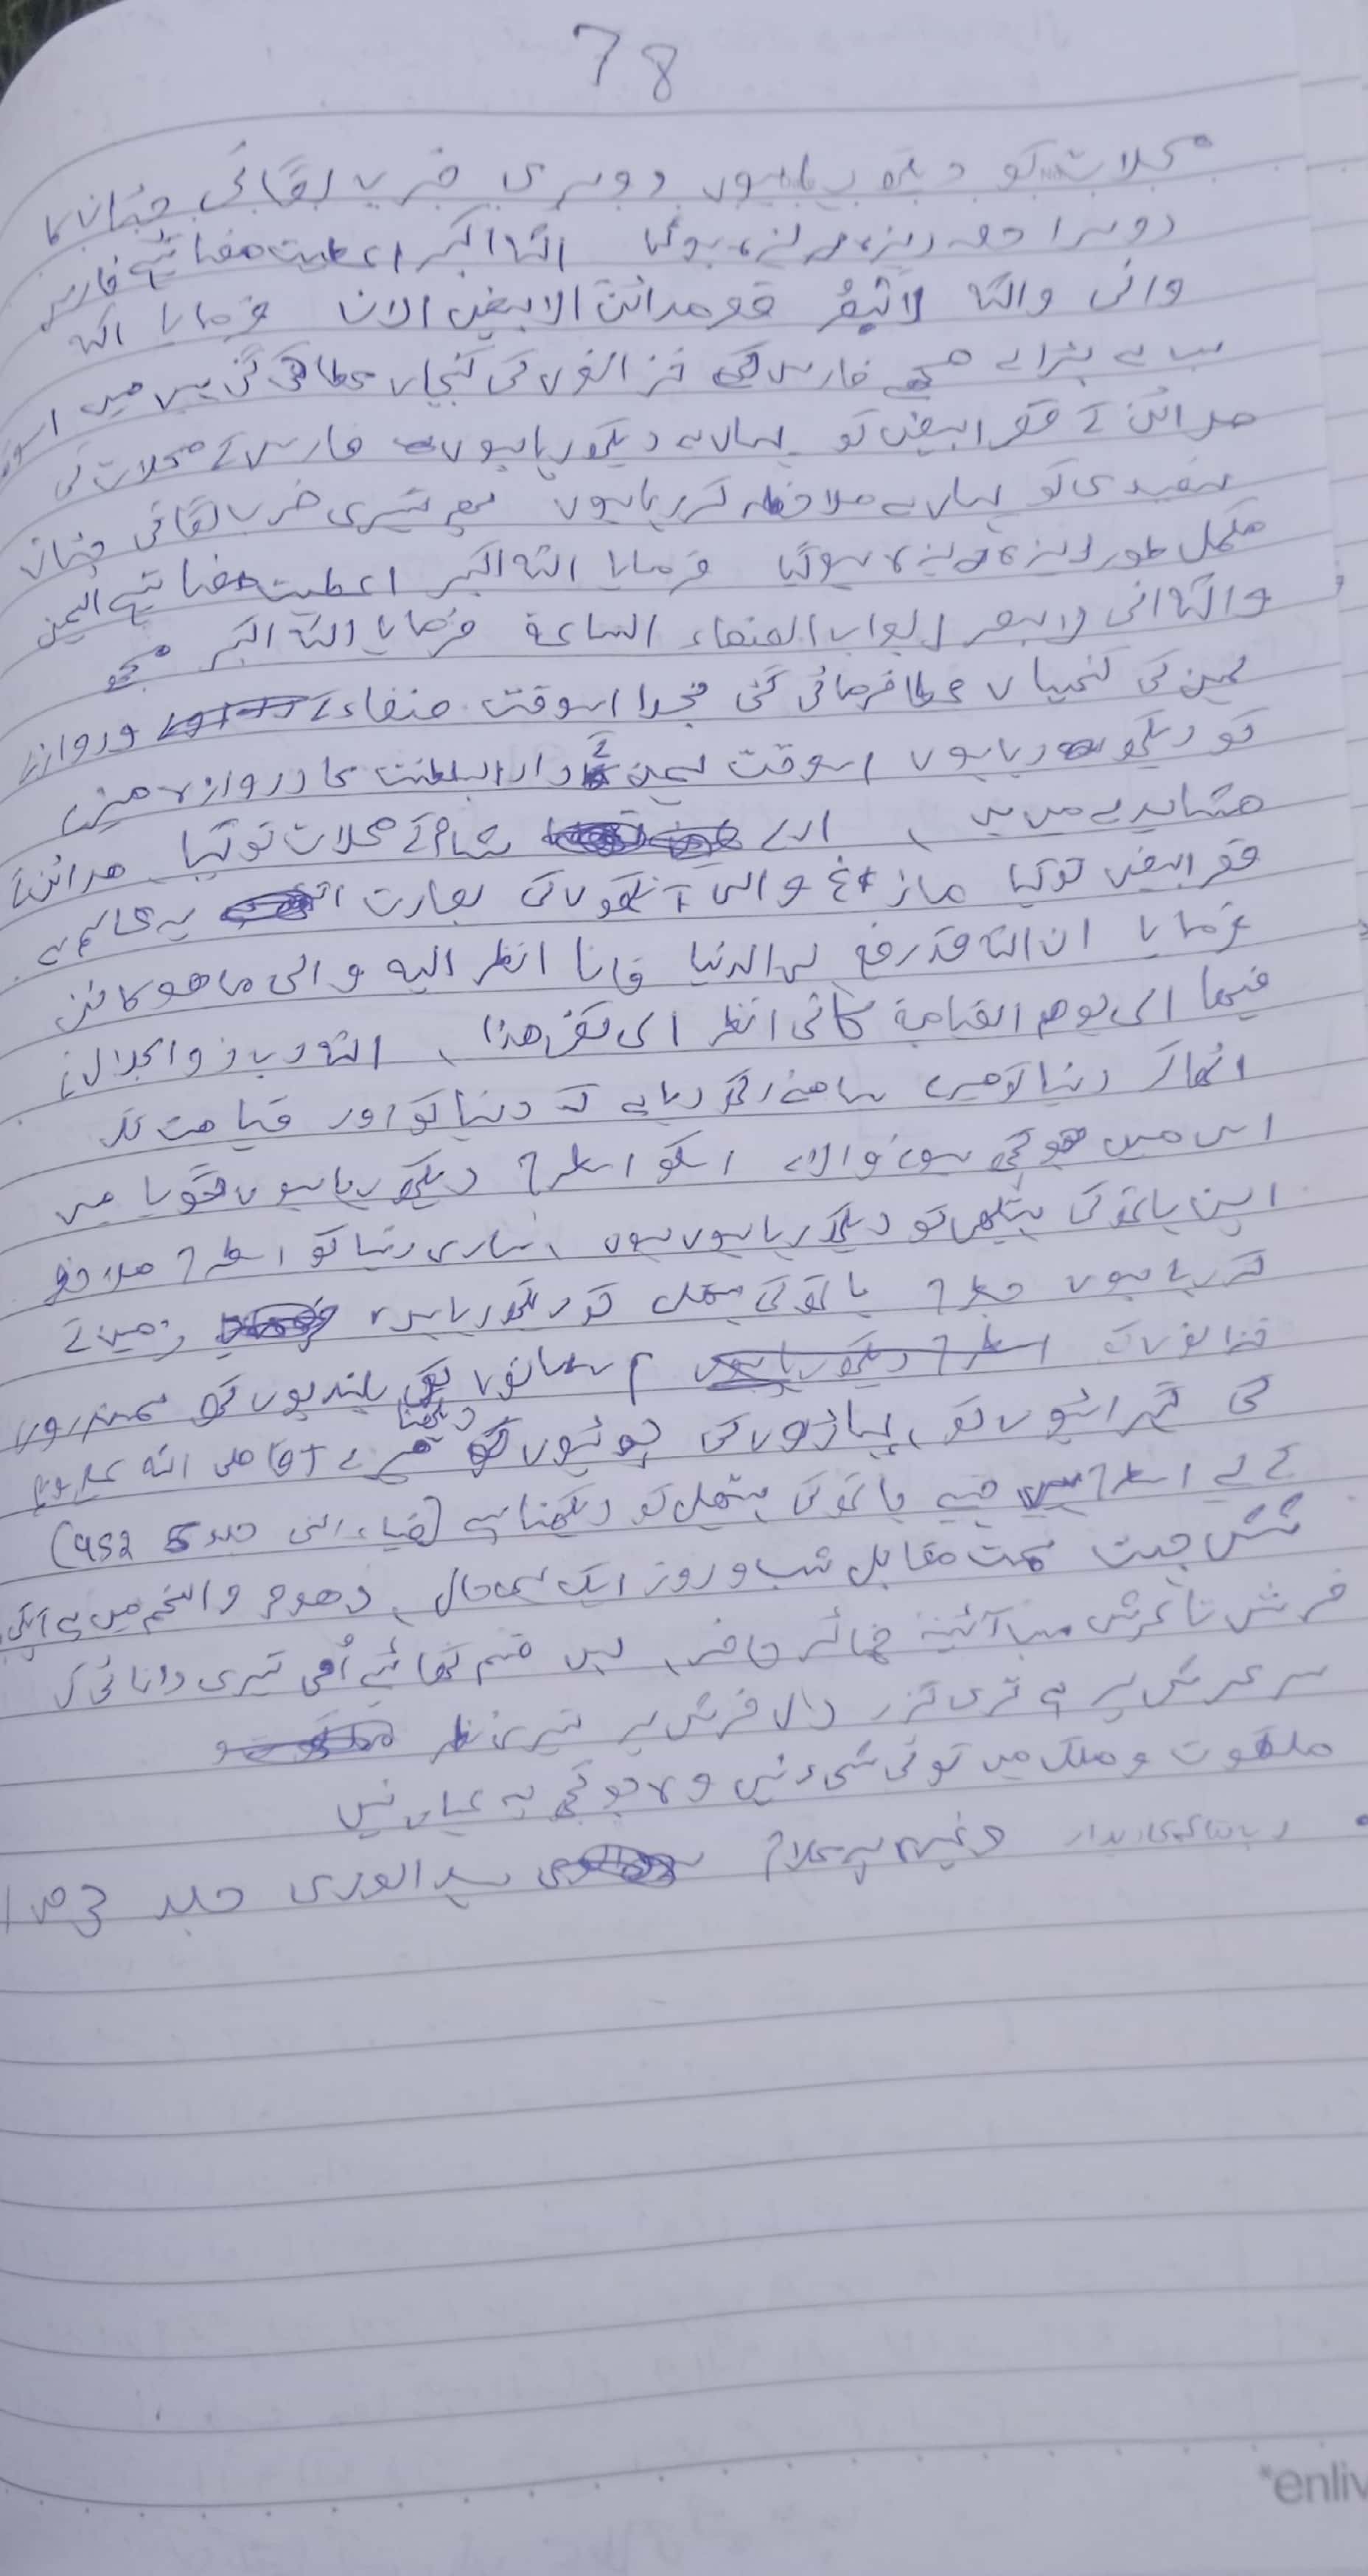 78
محلات کو دیکھ رہا ہوں دوسری ضرب لگائی چٹان کا
دوسرا حصہ ریزہ ریزہ ہوگیا اللہ اکبر اعطیت مفاتیح فارس
وانی واللہ لابصر قصر مدائن الابیض الان فرمایا اللہ
سب سے بڑا ہے مجھے فارس کے خزانوں کی کنجیاں عطا کی گئی ہیں میں اسوقت
مدائن کے قصر ابیض کو یہاں سے دیکھ رہا ہوں فارس کے محلات کی
سفیدی کو یہاں سے ملاحظہ کر رہا ہوں پھر تیسری ضرب لگائی چٹان
مکمل طور ریزہ ریزہ ہوگیا فرمایا اللہ اکبر اعطیت مفاتیح الیمن
واللہ انی لابصر ابواب الصنعاء الساعۃ فرمایا اللہ اکبر مجھے
یمن کی کنجیاں عطا فرمائی گئی بخدا اسوقت صنعاء کے دروازے
کو دیکھ رہا ہوں اسوقت یمن کے دار السلطنت کا دروازہ میرے
مشاہدے میں ہیں ، ارے شام کے محلات تو کیا مدائن کا
قصر ابیض تو کیا مازاغ والی آنکھوں کی بصارت کا یہ عالم ہے
فرمایا ان اللہ قد رفع لی الدنیا فانا انظر الیہ و الی ما ھو کائن
فیھا الی یوم القیامۃ کانی انظر الی کفی ھذا ، اللہ رب ذوالجلال نے
اٹھا کر دنیا کو میرے سامنے رکھ دیا ہے کہ دنیا کو اور قیامت تک
اس میں جو کچھ ہونے والا ہے اسکو اسطرح دیکھ رہا ہوں گویا میں
اپنے ہاتھ کی ہتھیلی کو دیکھ رہا ہوں ، ساری دنیا کو اسطرح ملاحظہ
کر رہا ہوں جسطرح ہاتھ کی ہتھیلی کو دیکھ رہا ہوں زمین کے
خزانوں کو آسمانوں کی بلندیوں کو سمندروں
کی گہرائیوں کو ، پہاڑوں کی چوٹیوں کو دیکھنا میرے آقا صلی اللہ علیہ وسلم
کے لیے اسطرح ہے جیسے ہاتھ کی ہتھیلی کو دیکھنا ہے (ضیاء النبی جلد 5 452)
شش جہت سمت مقابل شب و روز ایک ہی حال ، دھوم والنجم میں ہے آپکی
فرش تا عرش سب آئینہ ضمائر حاضر ، بس قسم کھائیے اُمی تیری دانائی کی
سر عرش پر ہے تری گزر دل فرش پر ہے تیری نظر
ملکوت و ملک میں کوئی شیء نہیں وہ جو تجھ پہ عیاں نہیں
سید الوری جلد 3 ص 1
*enliv